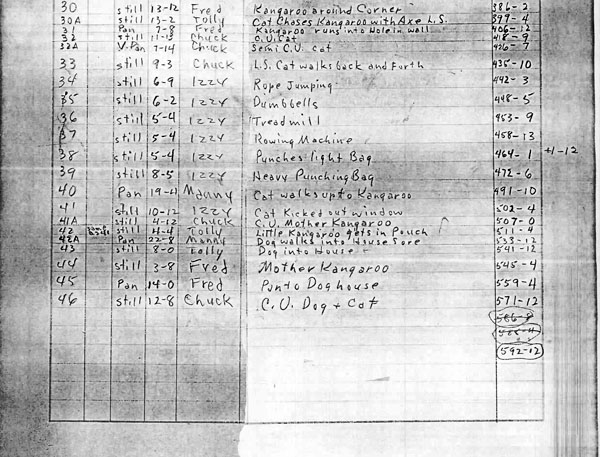 30 still 13-12 Fred Kangaroo around Corner 386-2
30A still 13-2 Tolly Cat Chases Kangaroo with Axe L.S. 397-4
31 Pan 7-8 Fred Kangaroo runs into Hole in wall 406-12
32 still 11-13 Chuck C.U. Cat 418-9
32A V.Pan 7-14 Chuck Semi C.U. cat 426-7
33 still 9-3 Chuck L.S. Cat walks back and Forth 435-10
34 still 6-9 Izzy Rope Jumping 442-3
35 still 6-2 Izzy Dumbbells 448-5
36 still 5-4 Izzy Treadmill 453-9
37 still 5-4 Izzy Rowing Machine 458-13
38 still 5-4 Izzy Punches light Bag 464-1 +1-12
39 still 8-5 Izzy Heavy Punching Bag 472-6
40 Pan 19-4 Manny Cat walks up to Kangaroo 491-10
41 still 10-12 Izzy Cat Kicked out window 502-4
41A still 4-12 Chuck C.U. Mother Kangaroo 507-0
42 still 4-4 Tolly Little Kangaroo gets in Pouch 511-4
42A Pan 22-8 Manny Dog walks into House Sore 533-12
43 still 8-0 Tolly Dog into House 541-12
44 still 3-8 Fred Mother Kangaroo 545-4
45 Pan 14-0 Fred Pan to Dog house 559-4
46 still 12-8 Chuck C.U. Dog + Cat 571-12
592-12